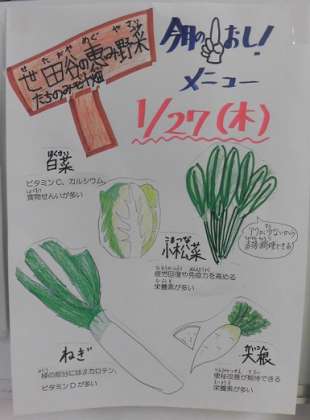 せたがや めぐ やさい
世田谷の恵み野菜
たちのみそ汁
今月のイチおし!
メニュー
1/27(木)
はくさい
白菜
ビタミンC、カルシウム、
食物せんいが多い
こまつな
小松菜
疲労回復や免疫力を高める
栄養素が多い
アクが少ないから
直接調理できる!
ねぎ
緑の部分にはβカロテン、
ビタミンDが多い
だいこん
大根
便秘改善が期待できる
栄養素が多い